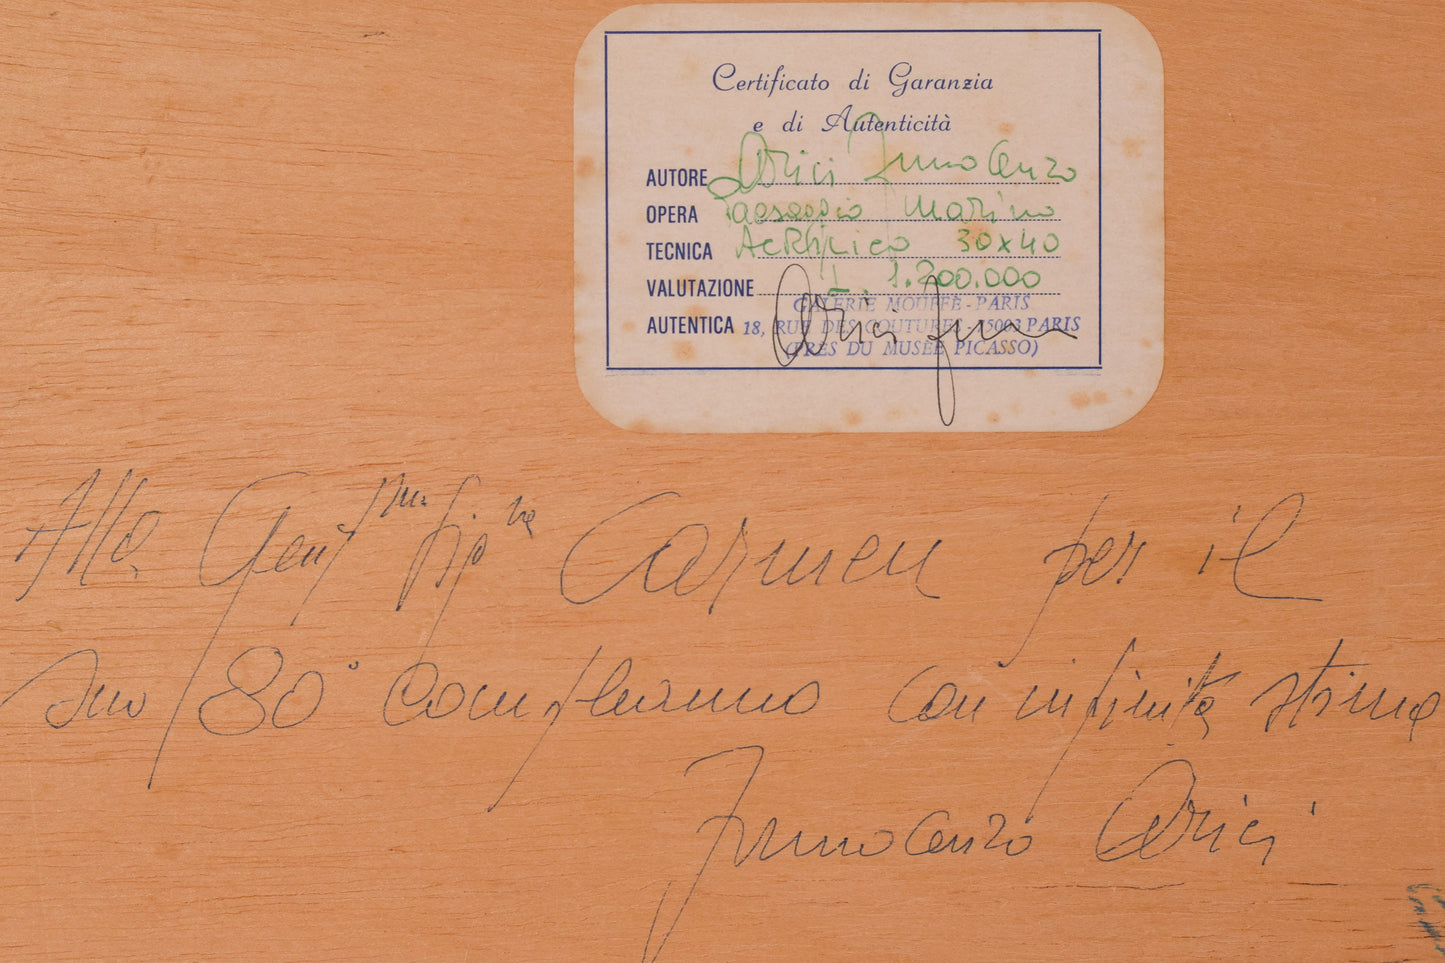 Certificato di Garanzia
e di Autenticità
AUTORE Orici Innocenzo
OPERA Paesaggio Marino
TECNICA Acrilico 30x40
VALUTAZIONE L. 1.200.000
GALERIE MOUFFE - PARIS
AUTENTICA 18, RUE DES COUTURES - 75003 PARIS
(PRES DU MUSÉE PICASSO)
Alla Gent.ma Sig.ra Carmen per il
suo 80° compleanno con infinita stima
Innocenzo Orici